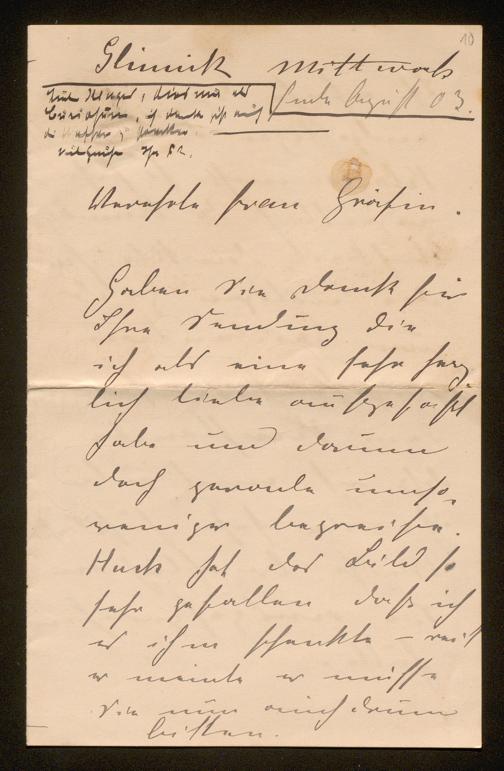 10
Glinnick Mittwoch
Ende August 03.
Verehrte Frau Gräfin.
Haben Sie Dank für
Ihre Sendung die
ich als eine sehr herz
lich liebe aufgefasst
habe und darum
doch gerade umso
weniger begreife.
Huck hat das Bild so
sehr gefallen dass ich
es ihm schenkte – weil
er meinte er müsse
Sie nun auch drum
bitten.